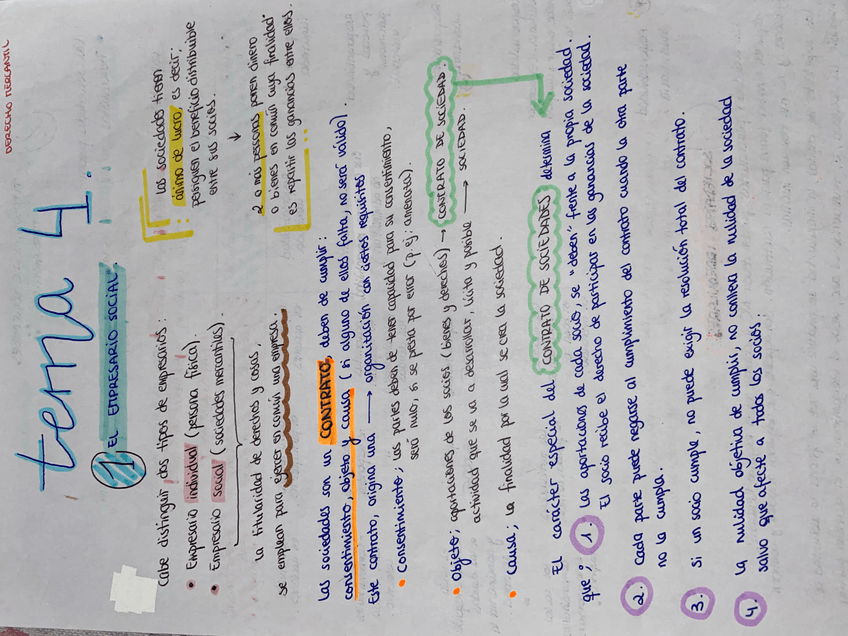 DERECHO MERCANTIL
tema 4.
1 EL EMPRESARIO SOCIAL.
Cabe distinguir dos tipos de empresarios:
• Empresario individual (persona física),
• Empresario social (sociedades mercantiles).
La titularidad de derechos y cosas,
se emplean para ejercer en común una empresa.
Las sociedades tienen
ánimo de lucro, es decir;
persiguen el beneficio distribuible
entre sus socios.
↓
2 o más personas ponen dinero
o bienes en común cuya finalidad
es repartir las ganancias entre ellos.
Las sociedades son un CONTRATO, deben de cumplir:
consentimiento, objeto y causa (si alguno de ellos falta, no será válido).
Este contrato, origina una → organización con ciertos requisitos
• Consentimiento; las partes deben de tener capacidad para su consentimiento,
será nulo, si se presta por error (p.ej: amenaza).
• Objeto; aportaciones de los socios (bienes y derechos) → CONTRATO DE SOCIEDAD.
actividad que se va a desarrollar, lícita y posible → SOCIEDAD.
• Causa; la finalidad por la cual se crea la sociedad.
El carácter especial del CONTRATO DE SOCIEDADES determina
que; 1. Las aportaciones de cada socio, se "deben" frente a la propia sociedad.
El socio recibe el derecho de participar en las ganancias de la sociedad.
2. Cada parte puede negarse al cumplimiento del contrato cuando la otra parte
no la cumpla.
3. Si un socio cumple, no puede exigir la resolución total del contrato.
4. La nulidad objetiva de cumplir, no conlleva la nulidad de la sociedad
salvo que afecte a todos los socios.